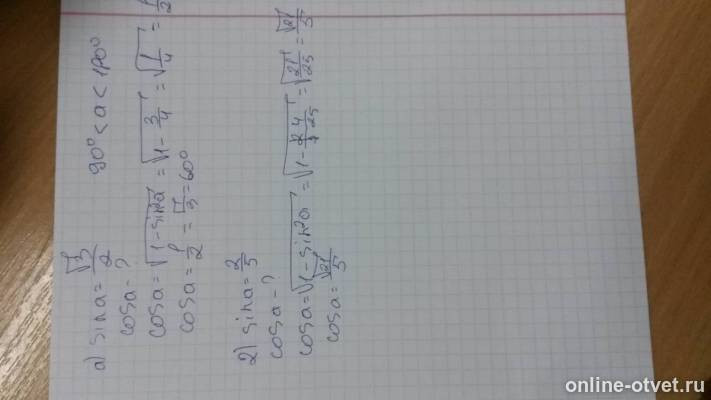 а) sina = √3/2     90° < a < 180°
cosa - ?
cosa = √1 - sin²a = √1 - 3/4 = √1/4 = 1/2
cosa = 1/2 = π/3 = 60°
2) sina = 2/5
cosa - ?
cosa = √1 - sin²a = √1 - 4/25 = √21/25 = √21/5
cosa = √21/5
online-otvet.ru